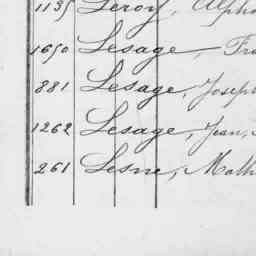 1135 Leroy, Alpho
1650 Lesage, Fra
881 Lesage, Joseph
1262 Lesage, Jean,
261 Lesne, Math